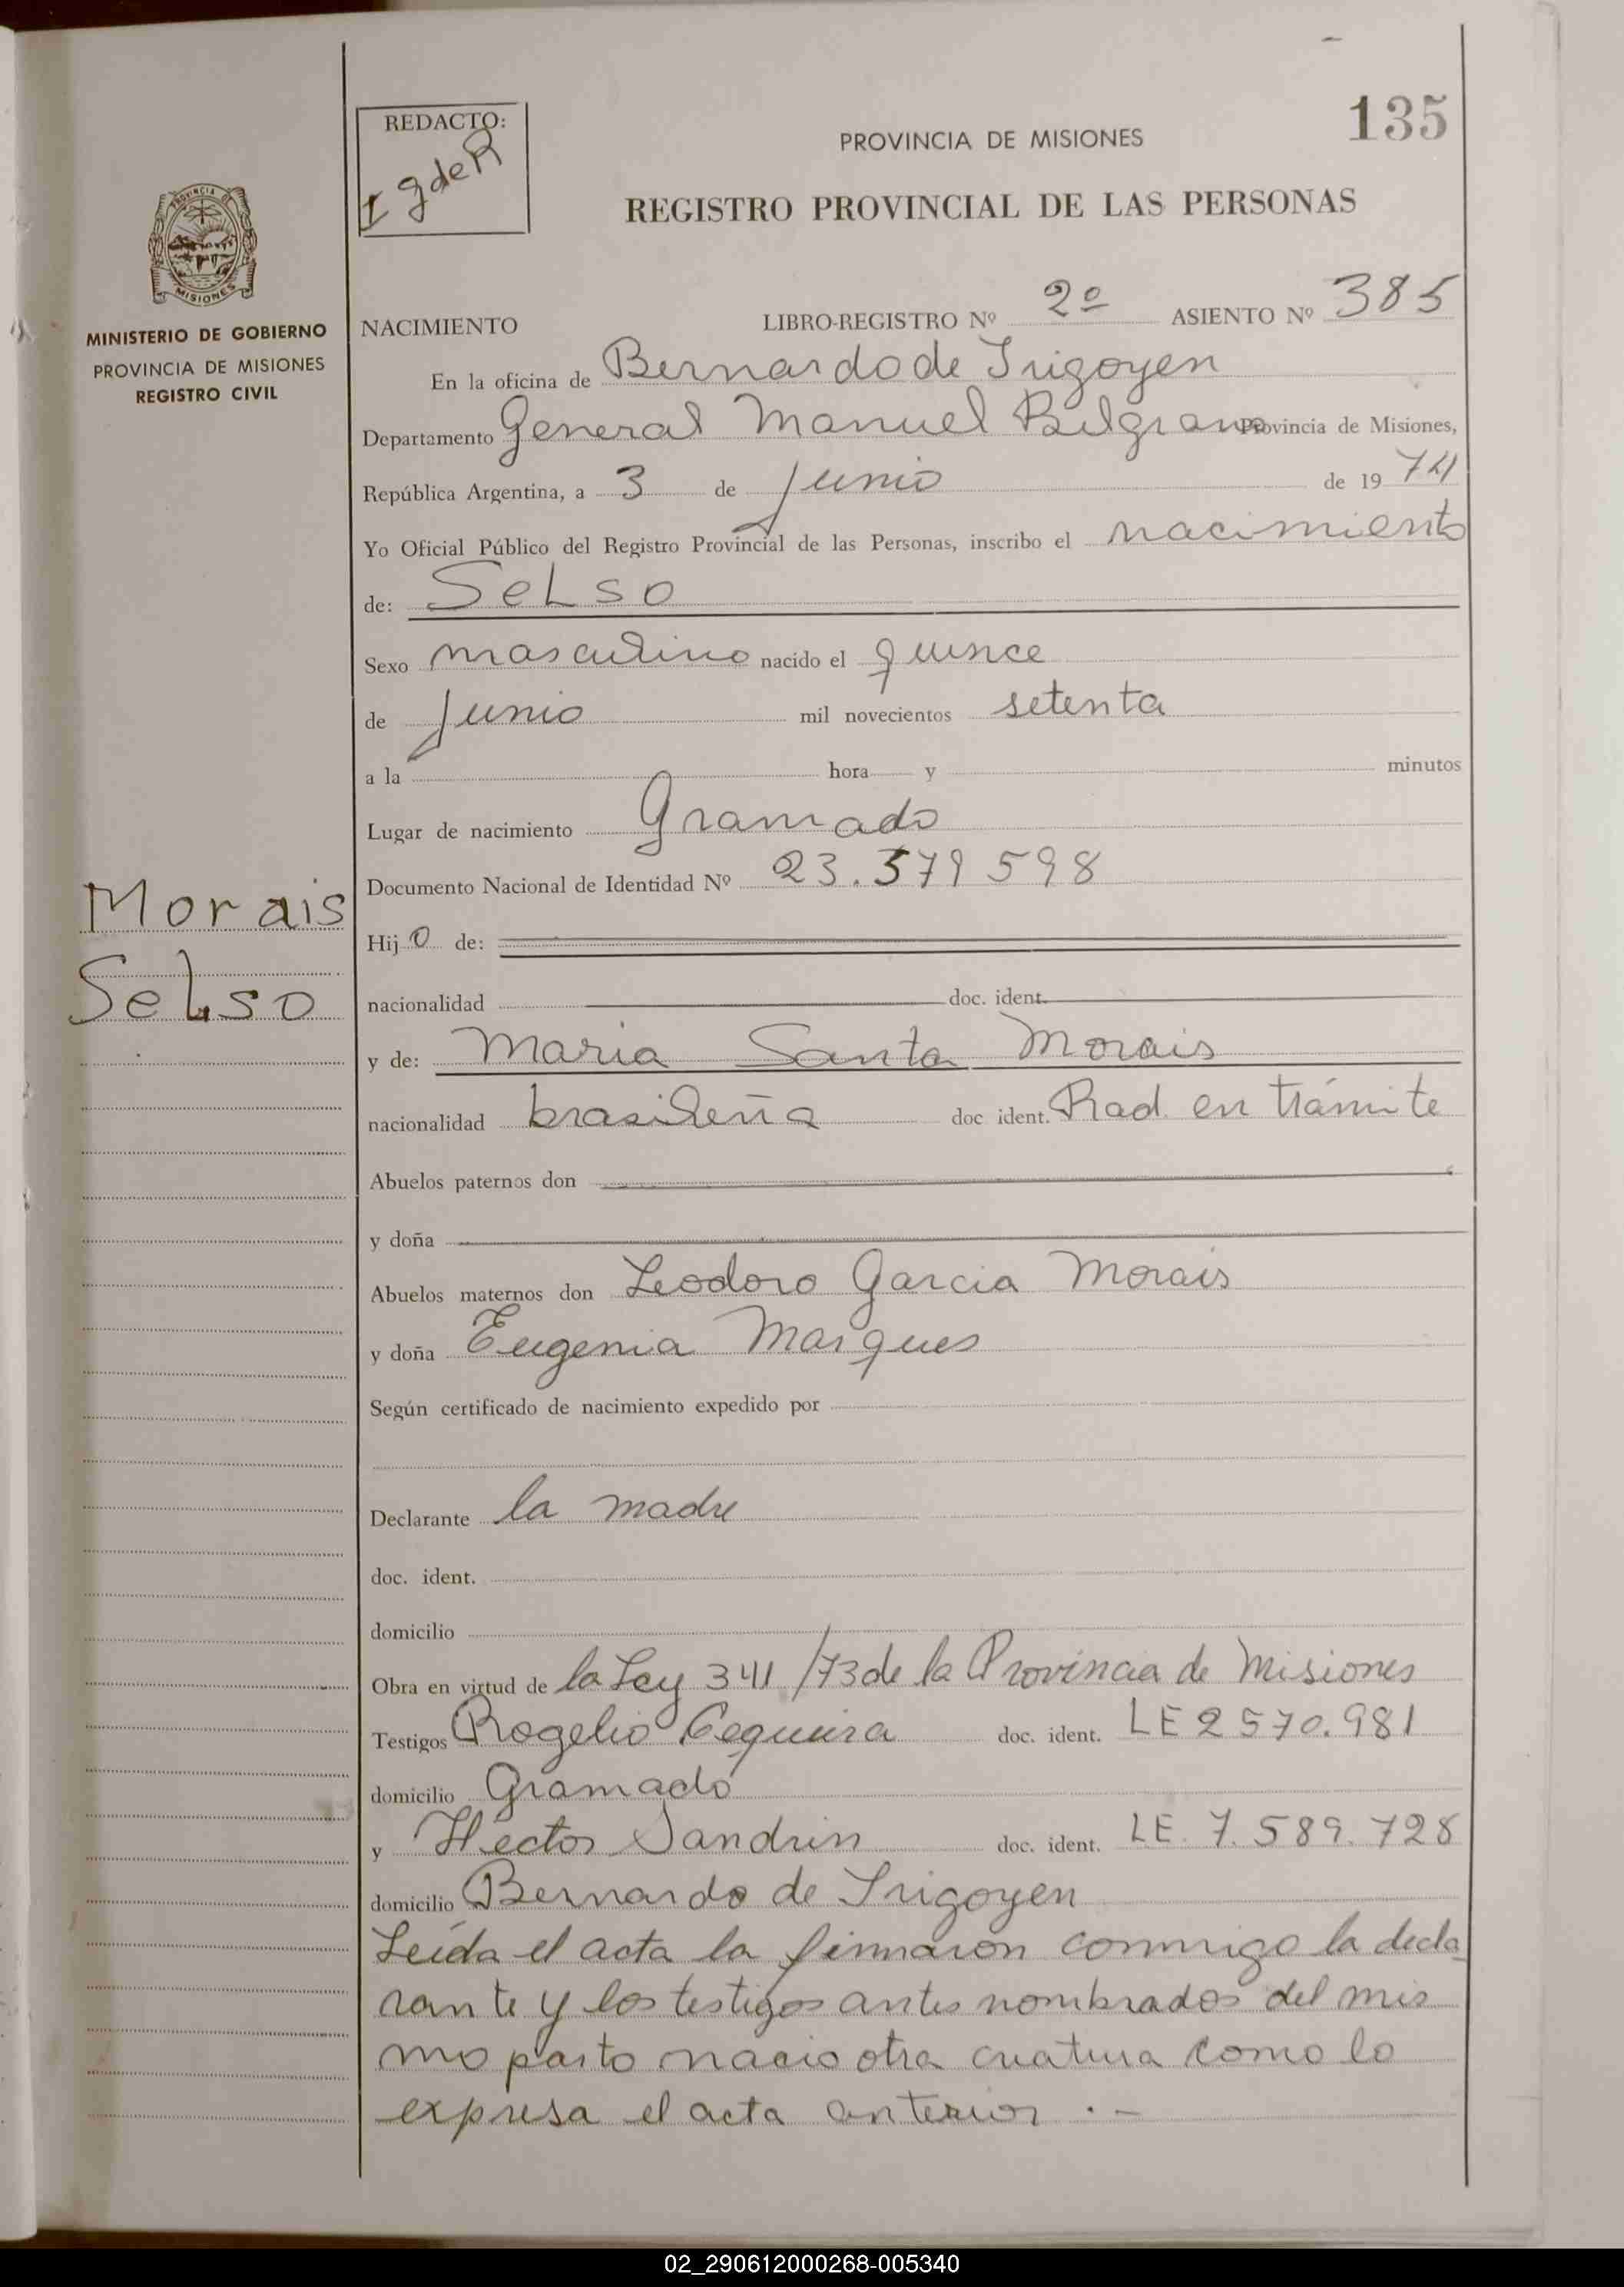 135
REDACTO:
I g de R
PROVINCIA DE MISIONES
REGISTRO PROVINCIAL DE LAS PERSONAS
PROVINCIA
MISIONES
MINISTERIO DE GOBIERNO
PROVINCIA DE MISIONES
REGISTRO CIVIL
NACIMIENTO LIBRO-REGISTRO Nº 2º ASIENTO Nº 385
En la oficina de Bernardo de Irigoyen
Departamento General Manuel Belgrano Provincia de Misiones,
República Argentina, a 3 de Junio de 19 74
Yo Oficial Público del Registro Provincial de las Personas, inscribo el nacimiento
de: SeLso
Sexo masculino nacido el quince
de Junio mil novecientos setenta
a la hora y minutos
Lugar de nacimiento Gramado
Documento Nacional de Identidad Nº 23.379 598
Morais
SeLso
Hij o de:
nacionalidad doc. ident.
y de: Maria Santa Morais
nacionalidad brasileña doc ident. Rad. en trámite
Abuelos paternos don
y doña
Abuelos maternos don Leodoro Garcia Morais
y doña Eugenia Marques
Según certificado de nacimiento expedido por
Declarante la madre
doc. ident.
domicilio
Obra en virtud de la Ley 341/73 de la Provincia de Misiones
Testigos Rogelio Cequeira doc. ident. LE 2 570.981
domicilio Gramado
y Héctor Sandrin doc. ident. LE. 7. 589. 728
domicilio Bernardo de Irigoyen
Leída el acta la firmaron conmigo la decla
rante y los testigos antes nombrados del mis
mo parto nacio otra criatura como lo
expresa el acta anterior . -
02_290612000268-005340